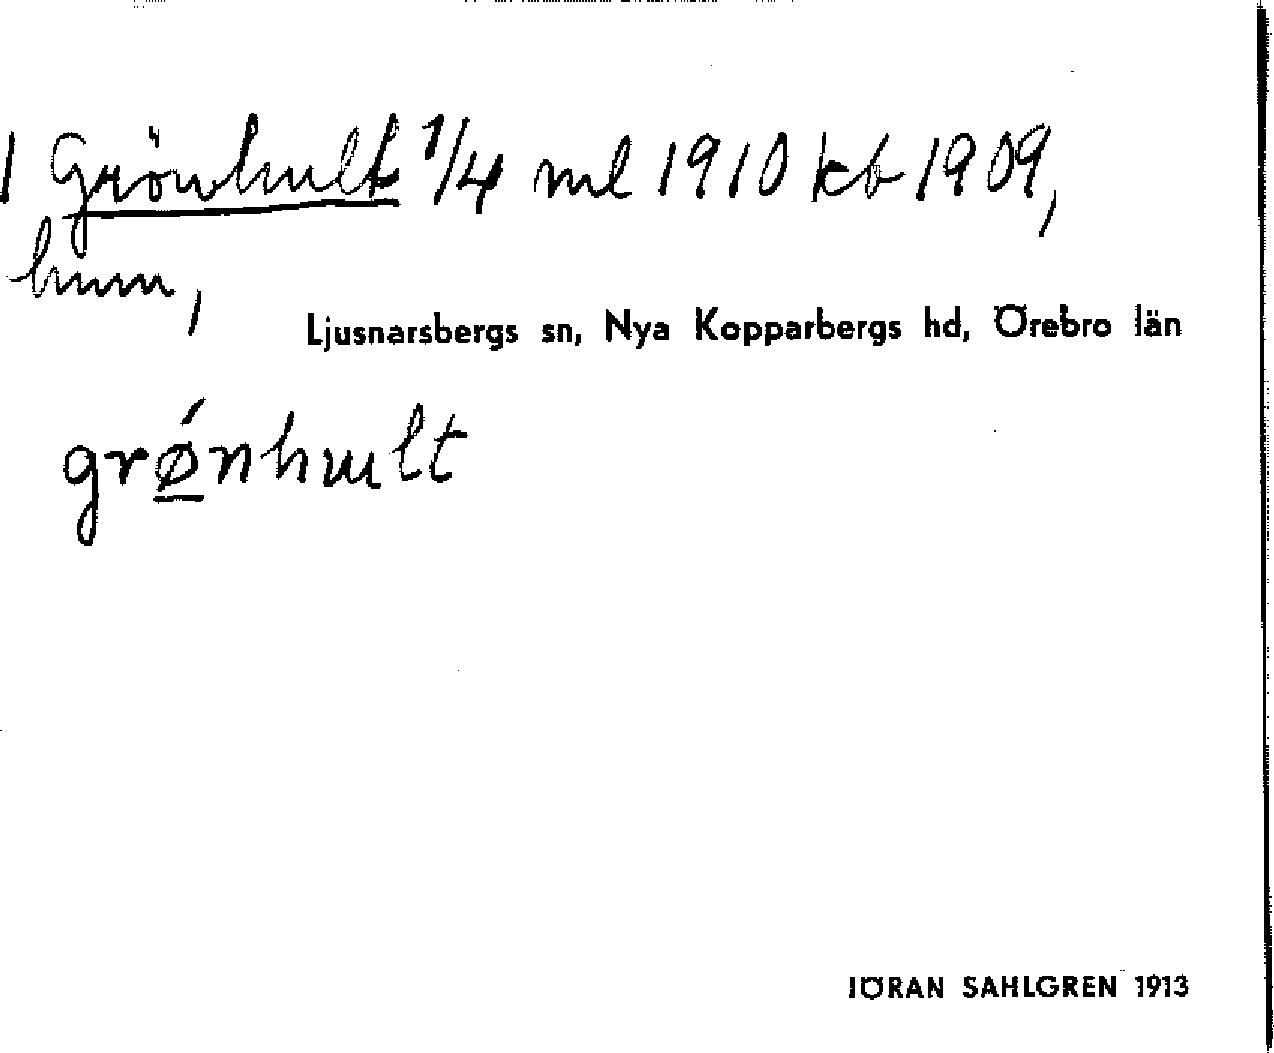 1 Grönhult 1/4 ml 1910 kb 1909,
hmn,
Ljusnarsbergs sn, Nya Kopparbergs hd, Örebro län
grǿnhult
JÖRAN SAHLGREN 1913